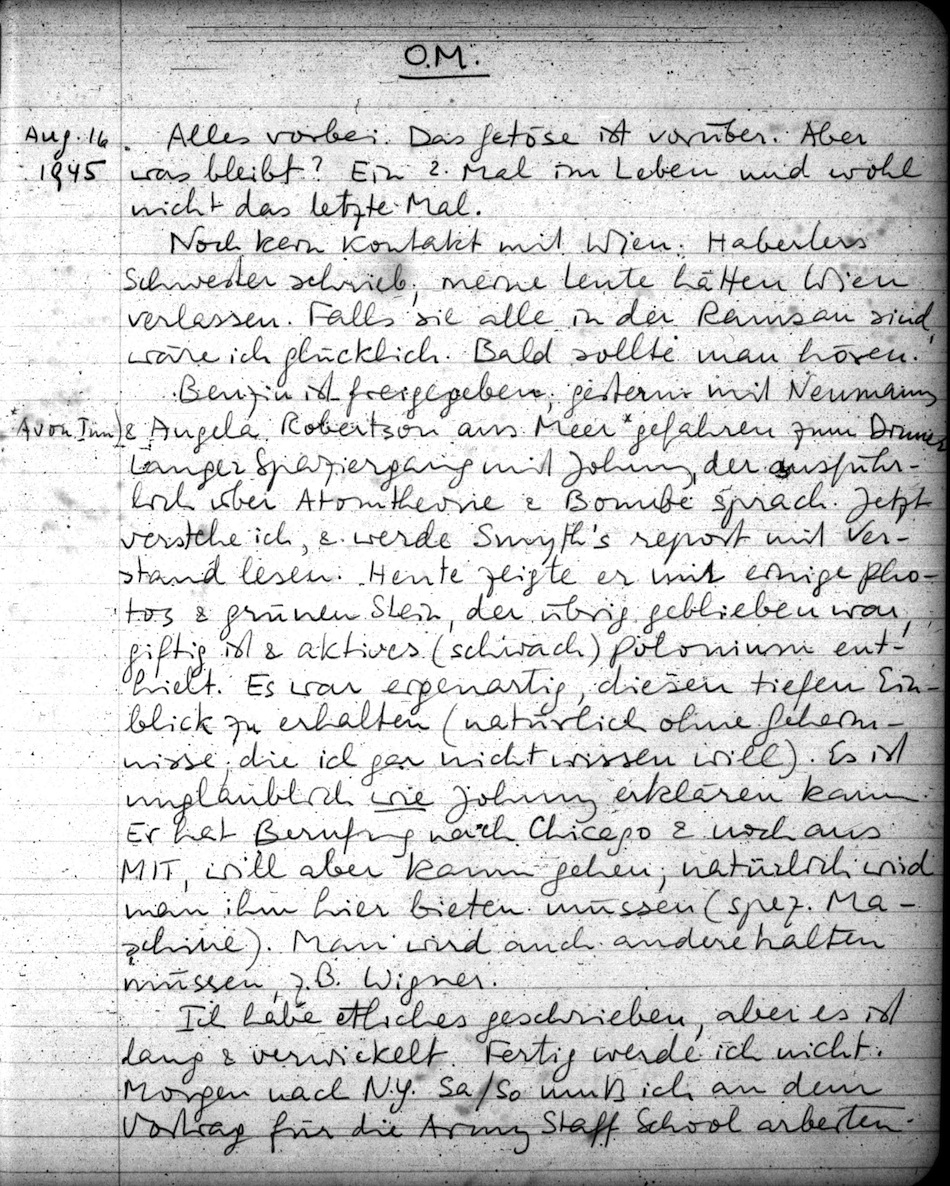 O.M.
Aug. 16. Alles vorbei. Das Getöse ist vorüber. Aber
1945 was bleibt? Ein 2. Mal im Leben und wohl
nicht das letzte Mal.
Noch kein Kontakt mit Wien. Haberlers
Schwester schrieb, meine Leute hätten Wien
verlassen. Falls sie alle in der Ramsau sind,
wäre ich glücklich. Bald sollte man hören.
Benzin ist freigegeben, gestern mit Neumanns
*Avon Inn) & Angela Robertson ans Meer* gefahren zum Dinner
Langer Spaziergang mit Johnny, der ausführ-
lich über Atomtheorie & Bombe sprach. Jetzt
verstehe ich, & werde Smyth's report mit Ver-
stand lesen. Heute zeigte er mir einige Pho-
tos & grünen Stein, der übrig geblieben war,
giftig ist & aktives (schwach) Polonium ent-
hielt. Es war eigenartig, diesen tiefen Ein-
blick zu erhalten (natürlich ohne Geheim-
nisse, die ich gar nicht wissen will). Es ist
unglaublich wie Johnny erklären kann.
Er hat Berufung nach Chicago & noch aus
MIT, will aber kaum gehen; natürlich wird
man ihm hier bieten müssen (spez. Ma-
schine). Man wird auch andere halten
müssen, z.B. Wigner.
Ich habe etliches geschrieben, aber es ist
lang & verwickelt. Fertig werde ich nicht.
Morgen nach N.Y. Sa/So muß ich an dem
Vortrag für die Army Staff School arbeiten.